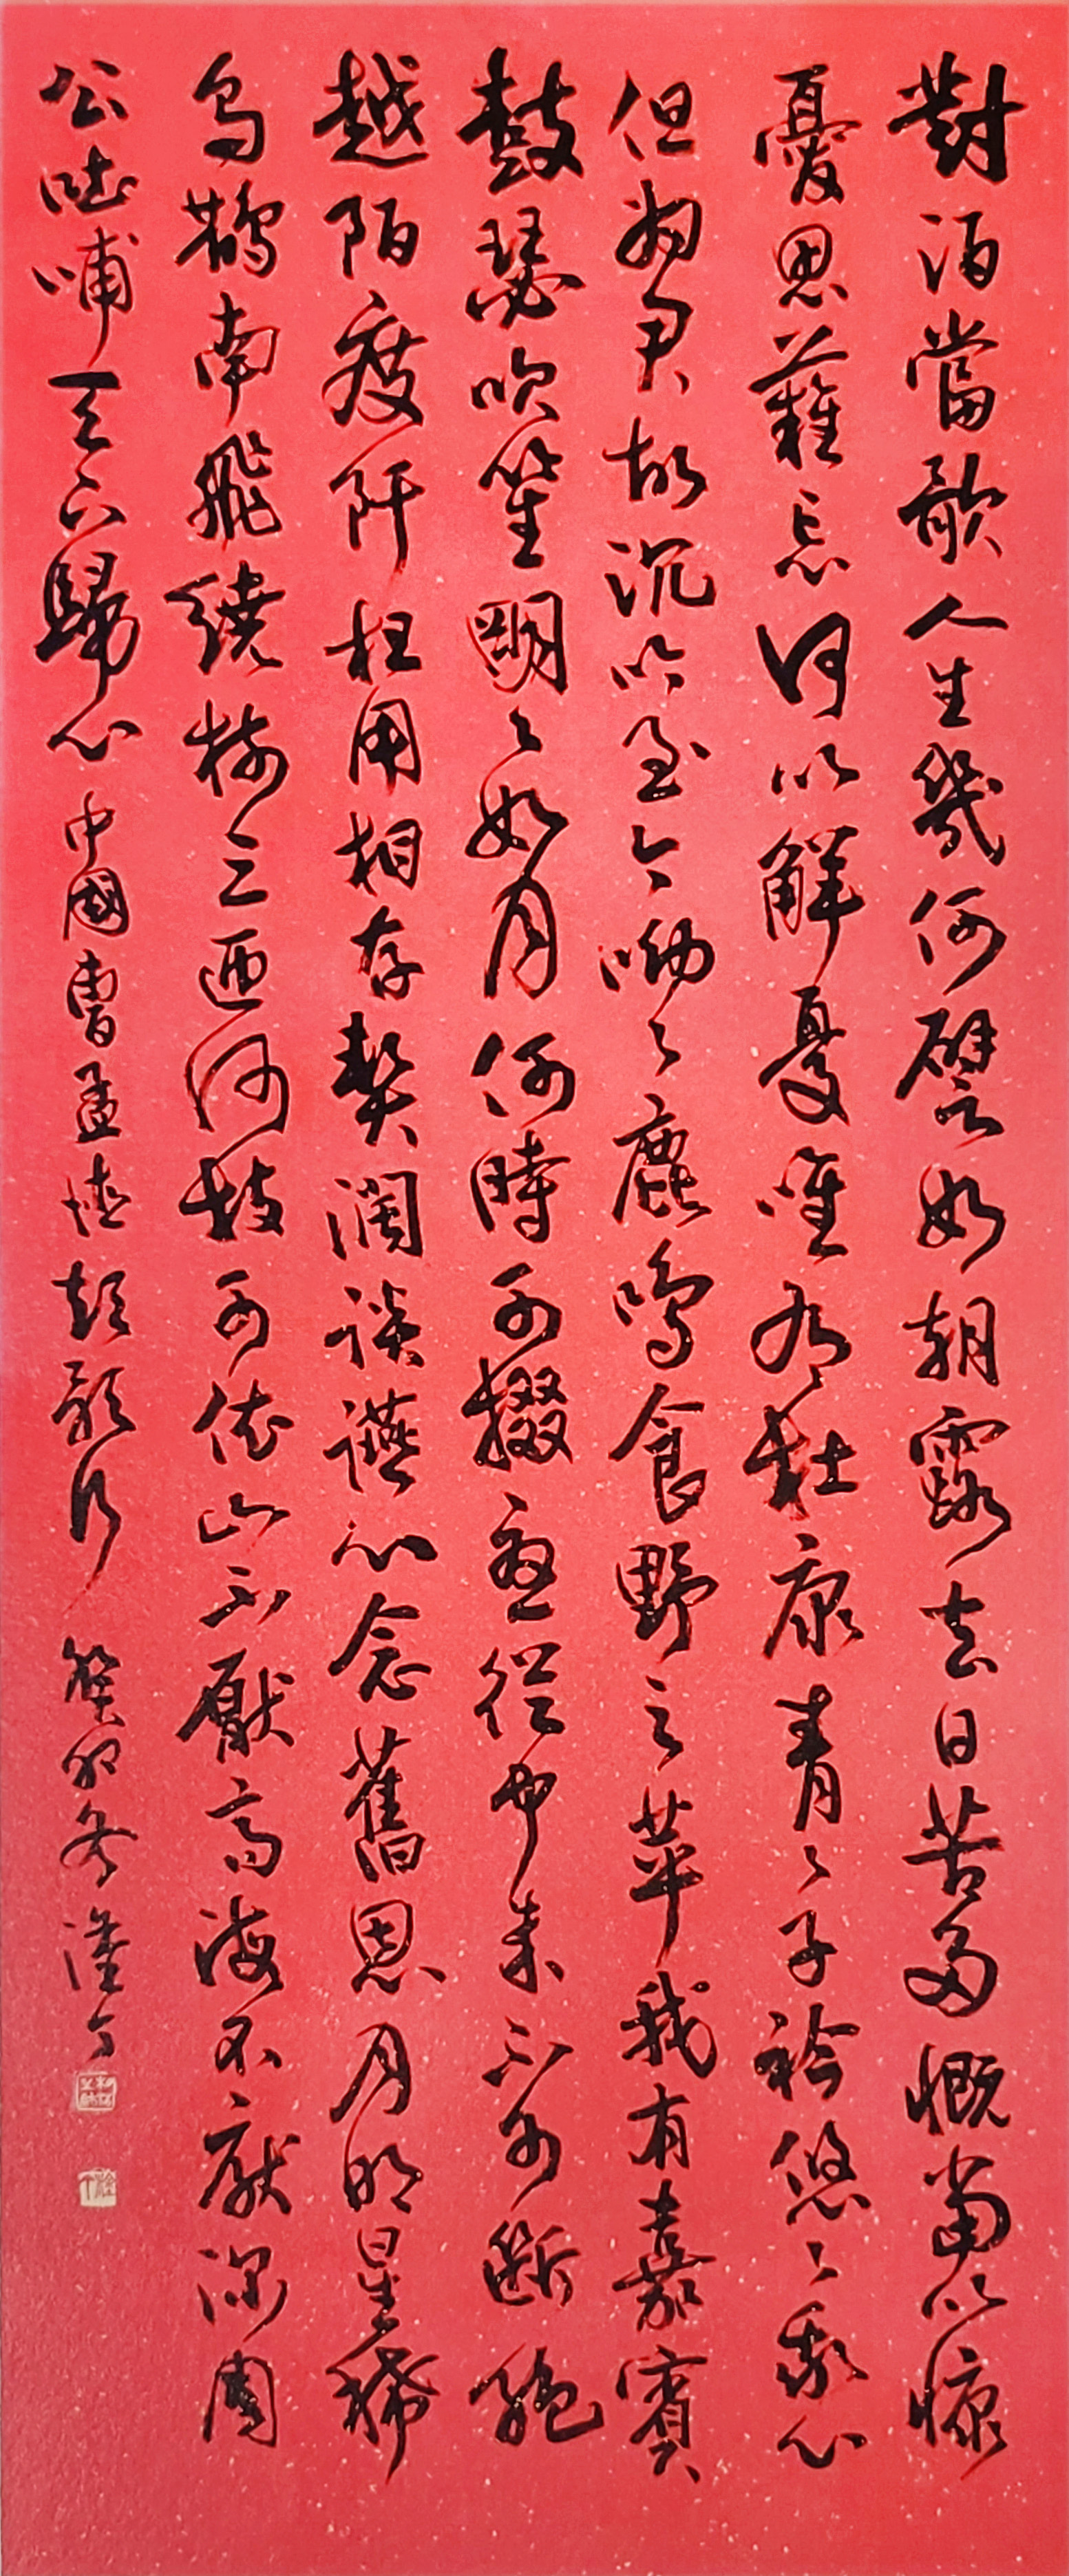 對酒當歌人生幾何譬如朝露去日苦多慨當以慷
憂思難忘何以解憂唯有杜康青々子衿悠々我心
但為君故沉吟至今呦々鹿鳴食野之苹我有嘉賓
鼓瑟吹笙明々如月何時可掇憂從中來不可斷絕
越陌度阡枉用相存契闊談讌心念舊恩月明星稀
烏鵲南飛繞樹三匝何枝可依山不厭高海不厭深周
公吐哺天下歸心 中國曹孟德短歌行 癸卯冬